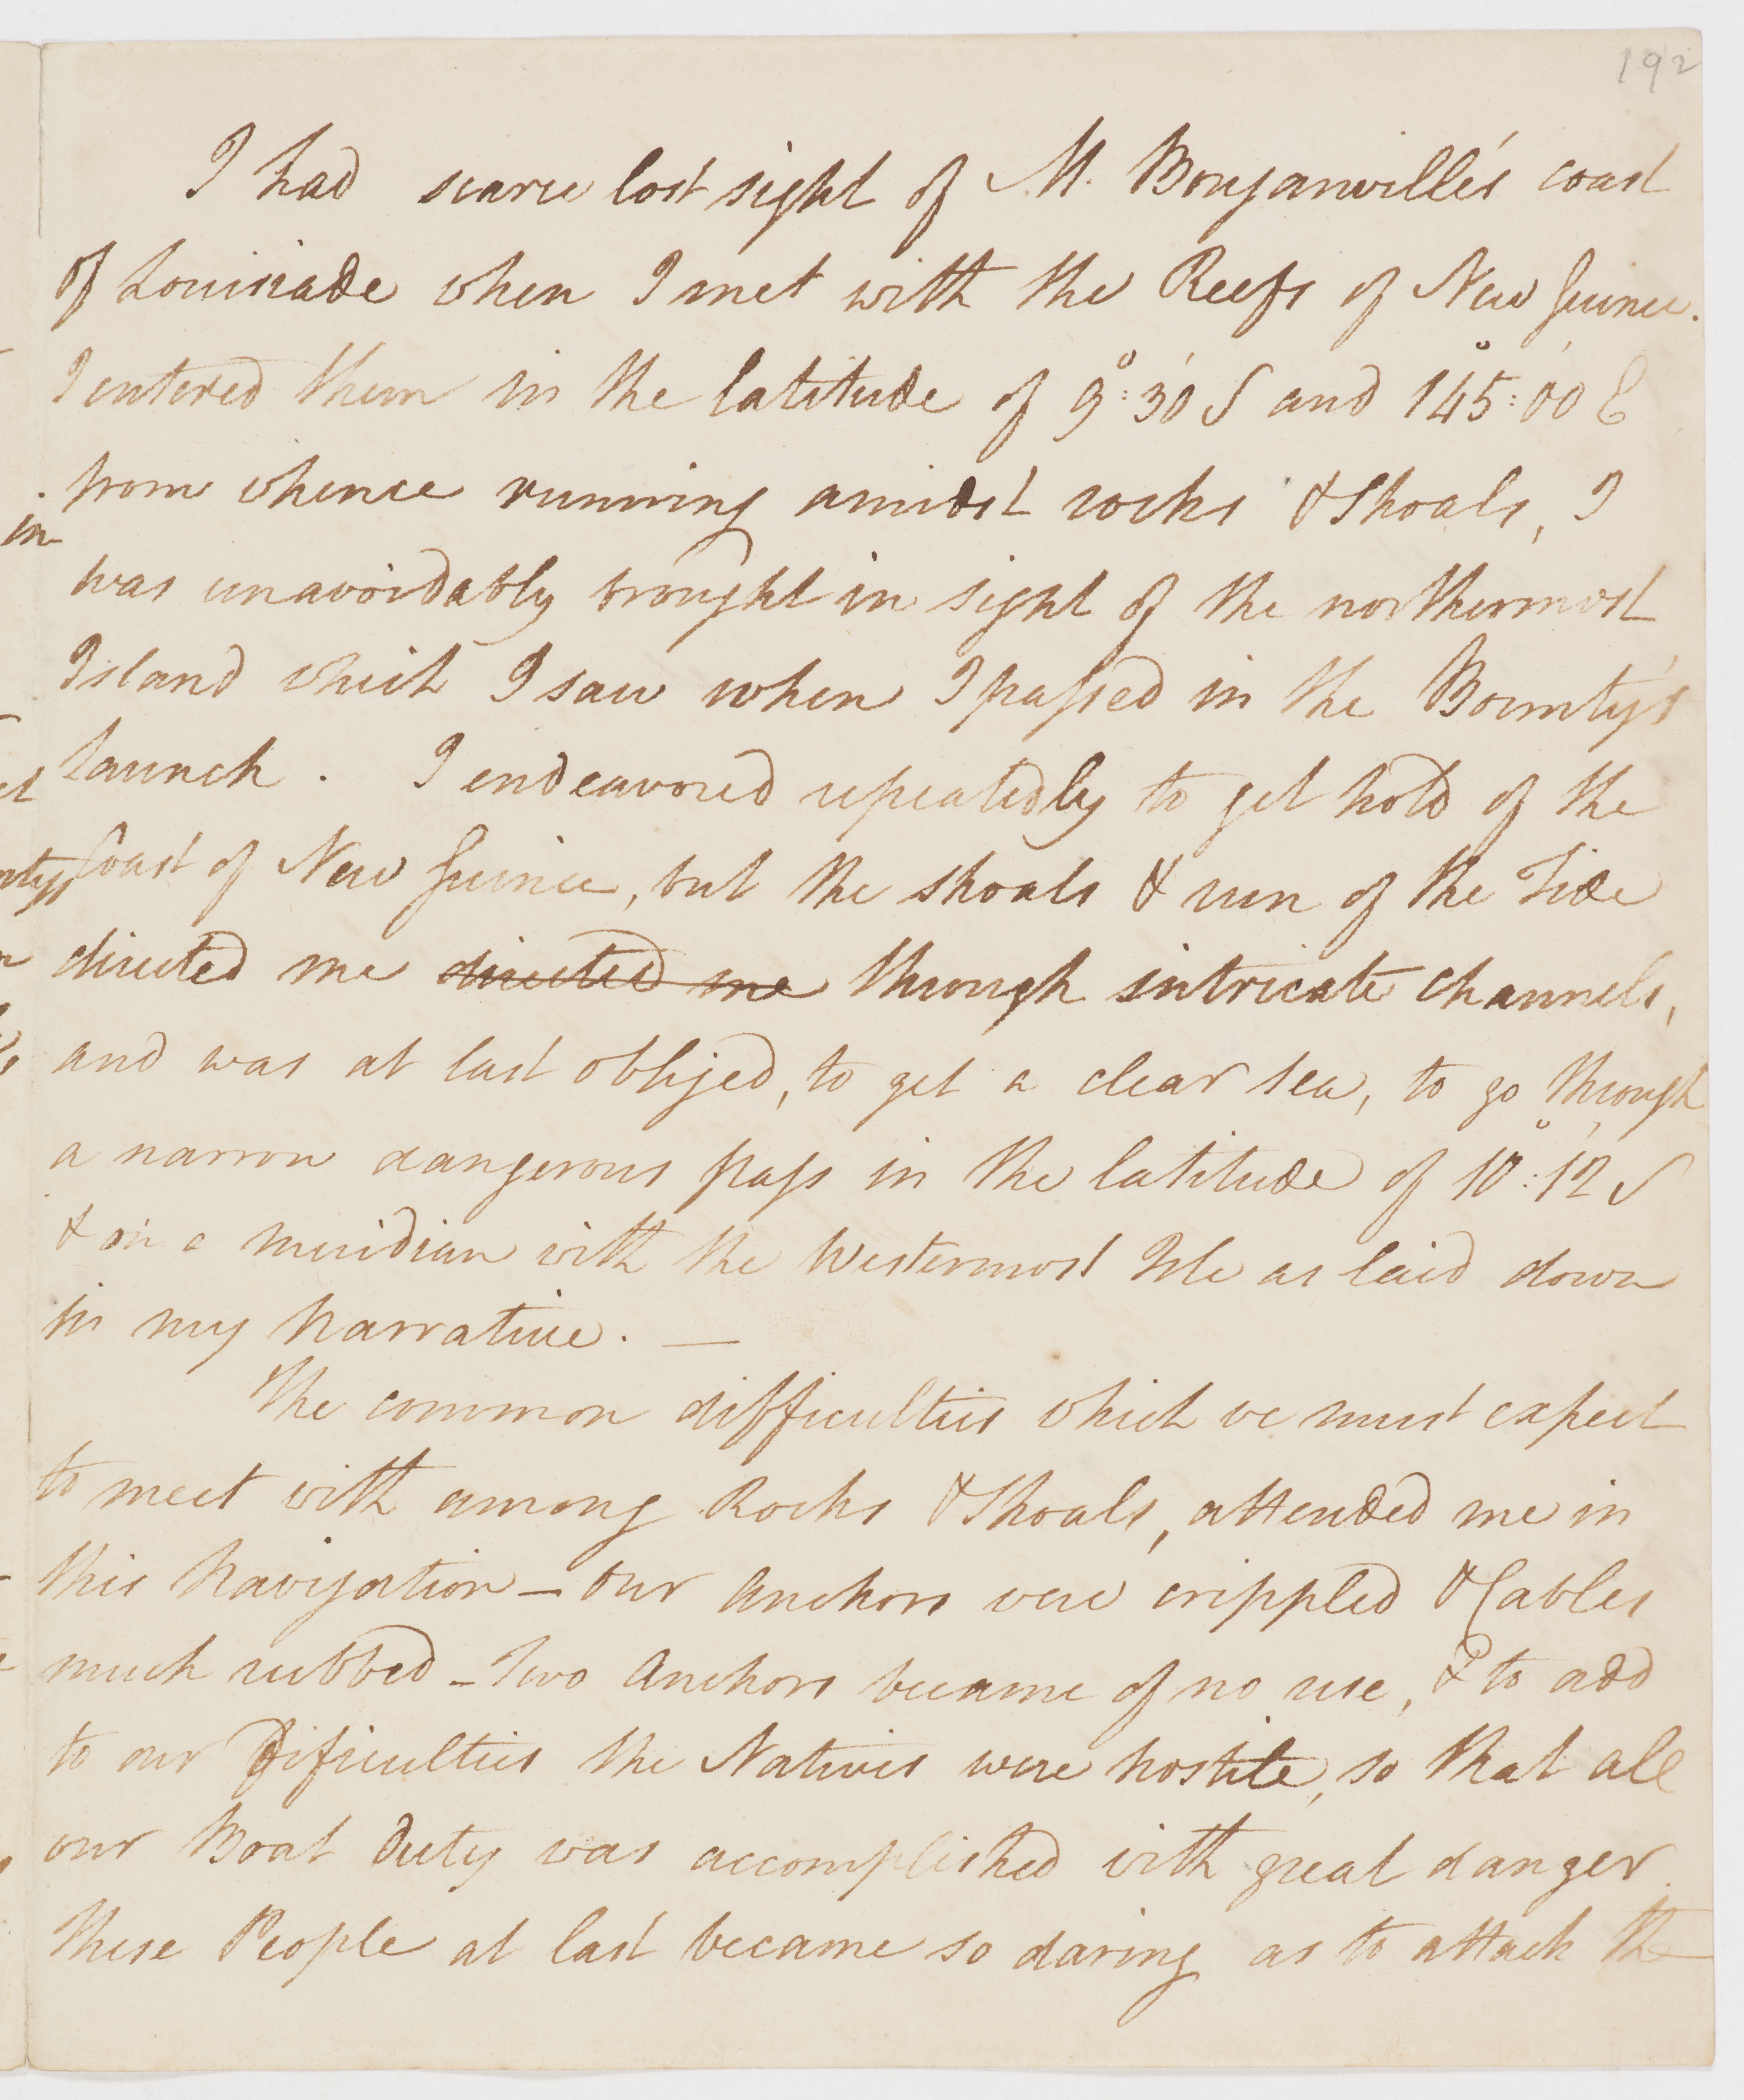 192
I had scarce lost sight of M. Bouganville's coast
of Louisiade when I met with the Reefs of New Guinea.
I entered them in the latitude of 9°:30' S and 145°:00' E
from whence running amidst rocks & Shoals, I
was unavoidably brought in sight of the northermost
Island which I saw when I passed in the Bounty's
launch. I endeavored repeatedly to get hold of the
Coast of New Guinea, but the shoals & run of the Tide
directed me directed me through intricate channels,
and was at last obliged, to get a clear sea, to go through
a narrow dangerous pass in the latitude of 10°:12' S
& on a meridian with the Westermost Isle as laid down
in my Narrative. —
The common difficulties which we must expect
to meet with among Rocks & Shoals, attended me in
this Navigation — our Anchors were crippled & Cables
much rubbed – Two Anchors became of no use, & to add
to our Dificulties the Natives were hostile, so that all
our Boat Duty was accomplished with great danger.
These People at last became so daring as to attack the